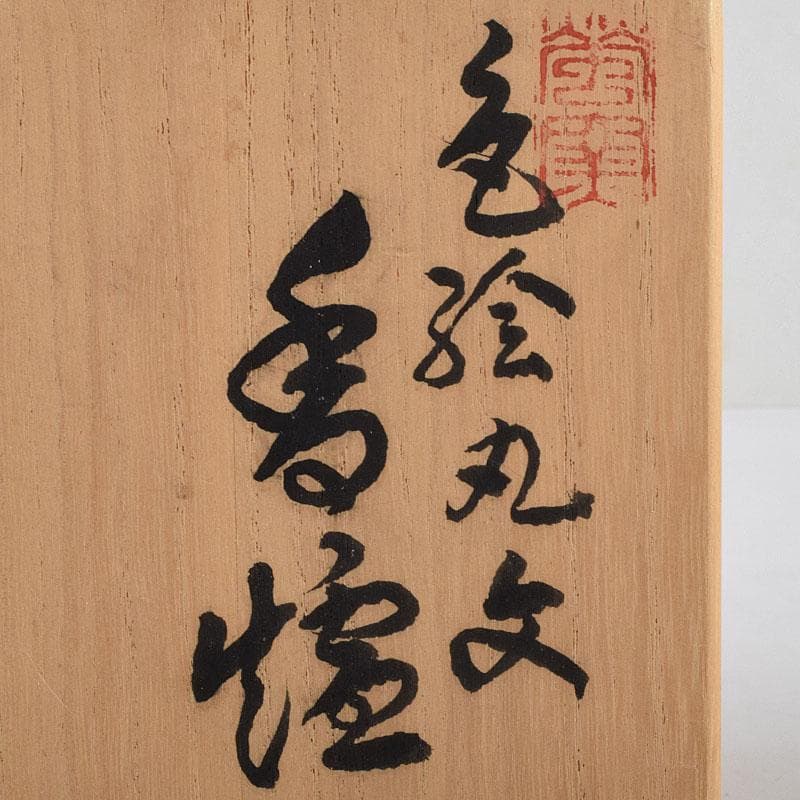 色絵丸文
香爐